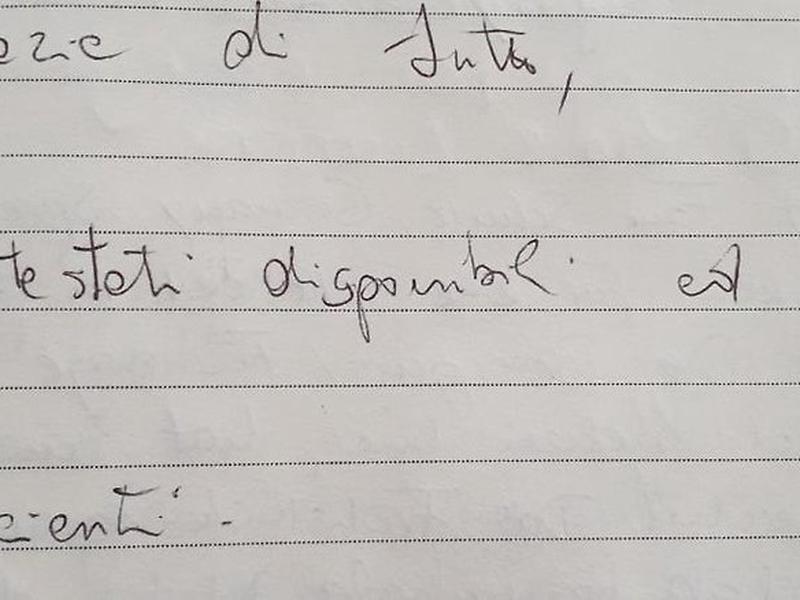 ezie di tutto,
te stati disponibili ed
cienti.